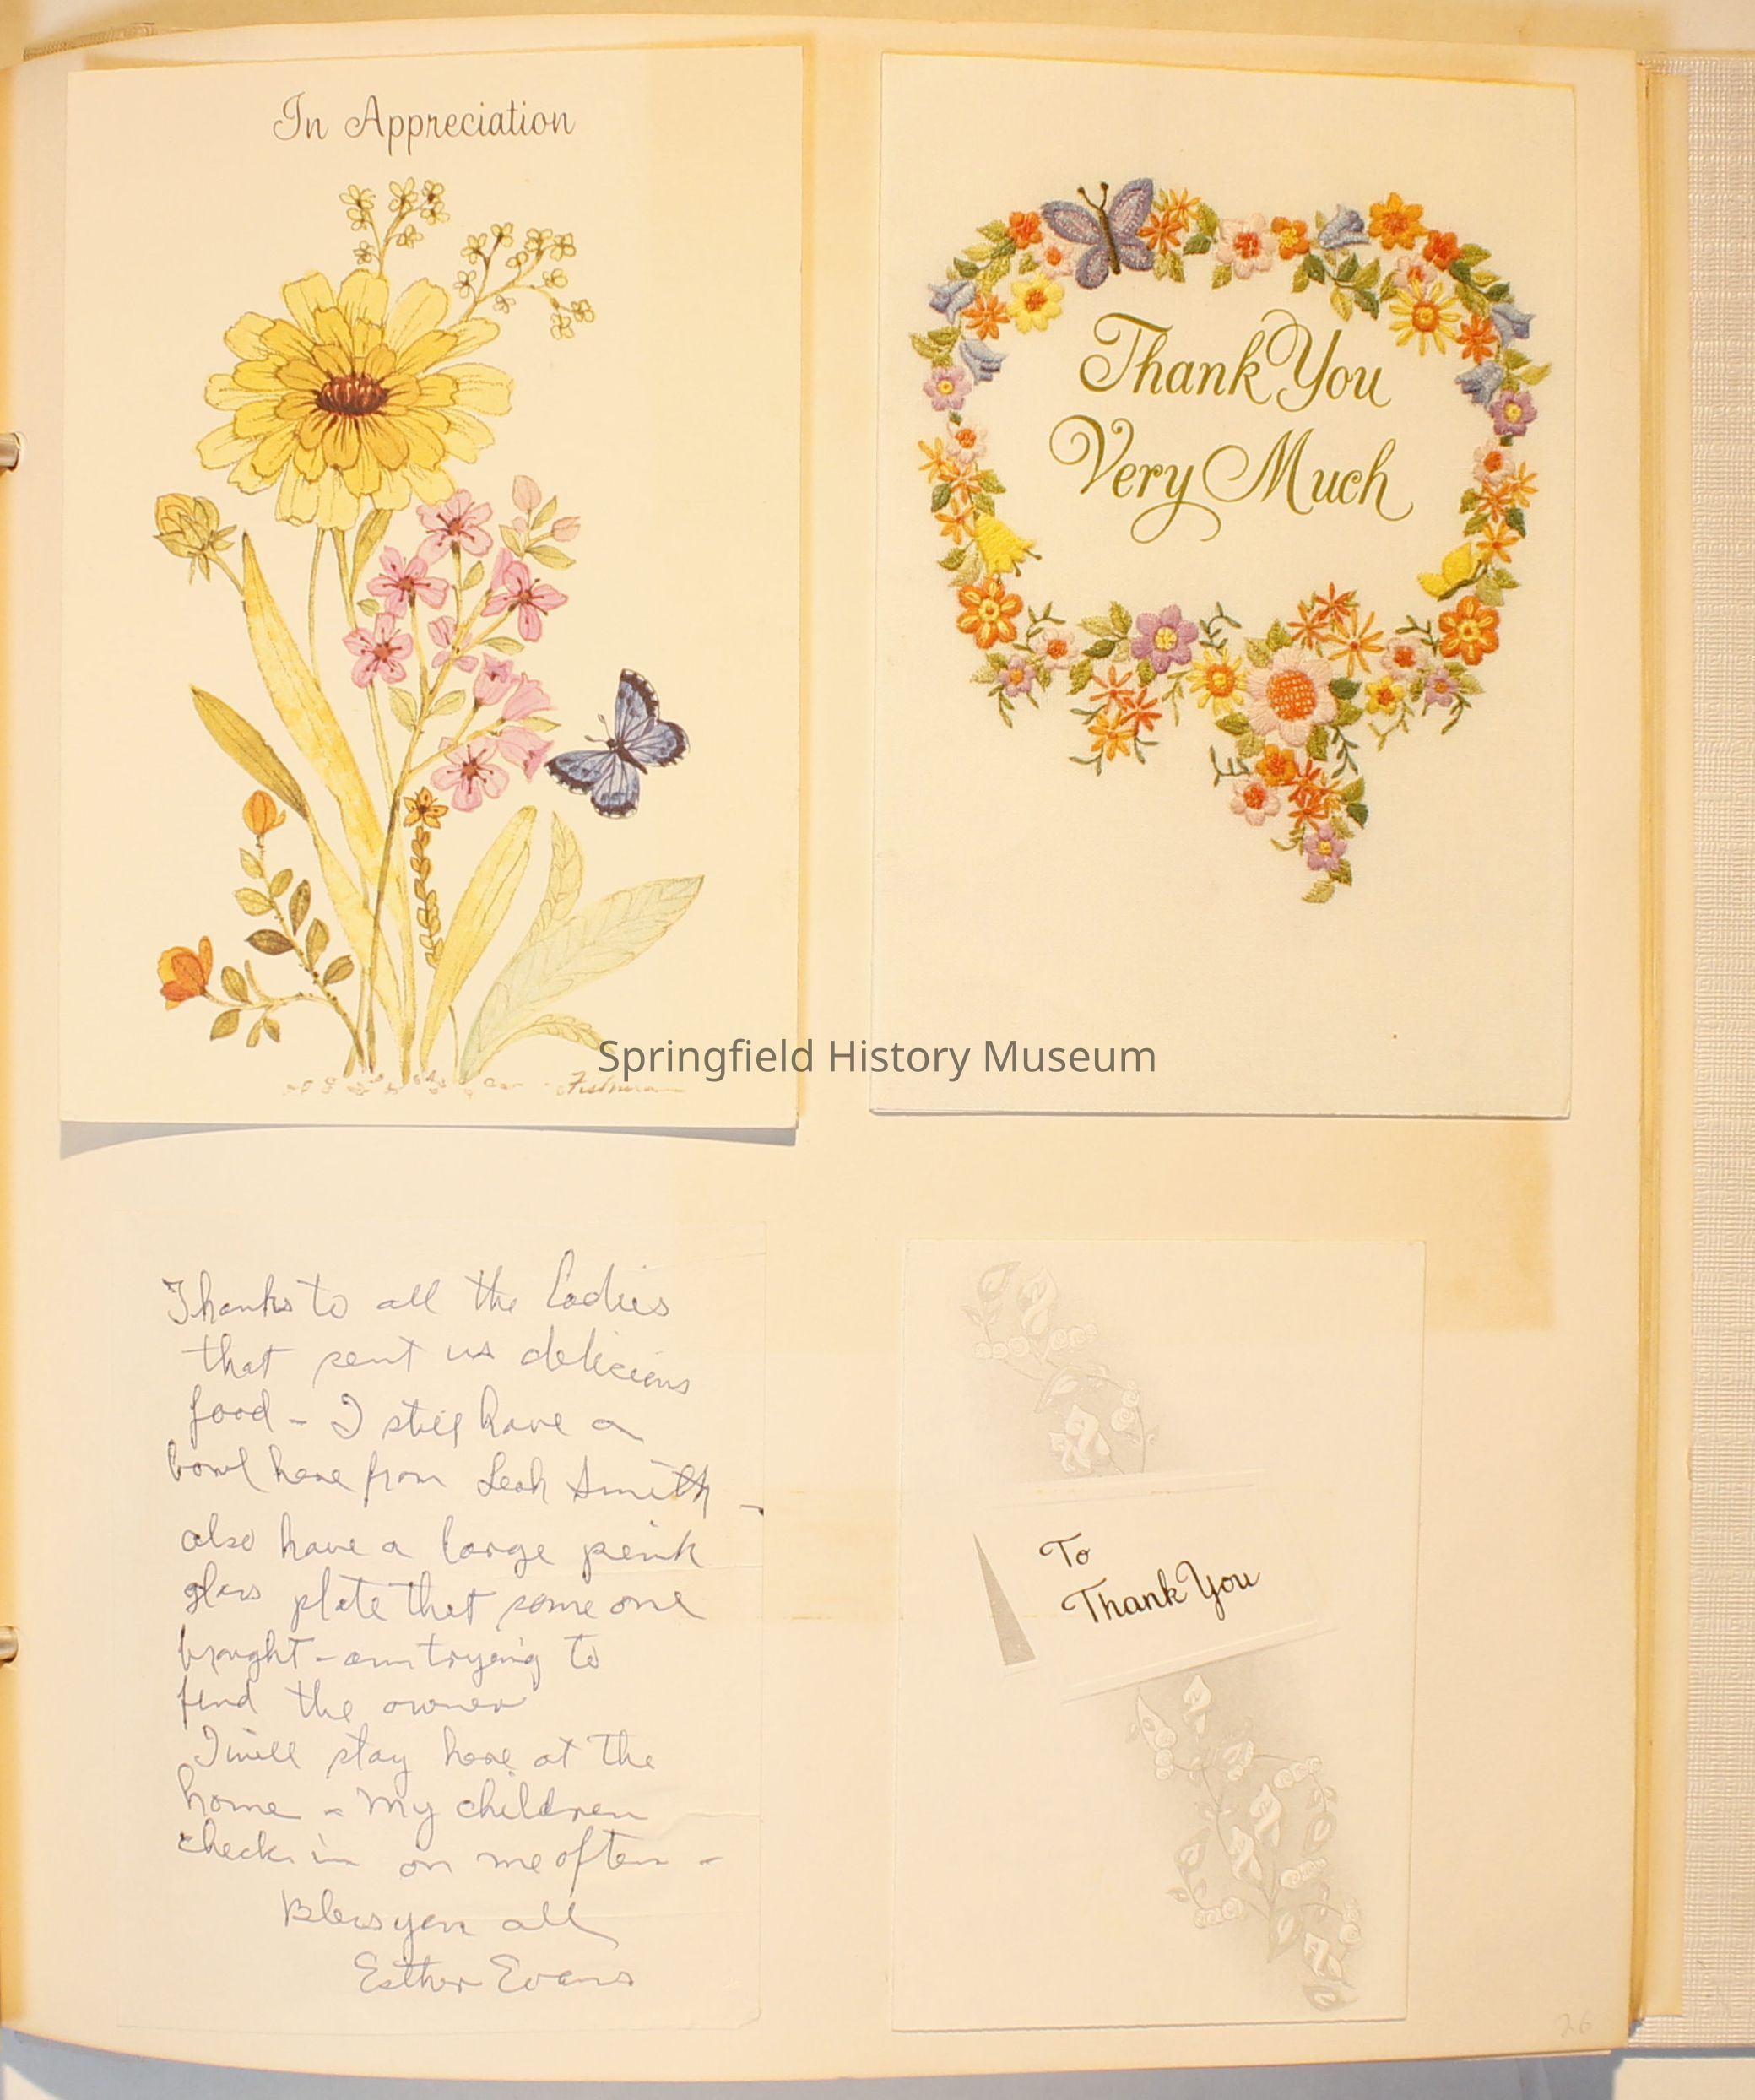 In Appreciation
Thank You
Very Much
Springfield History Museum
Thanks to all the Ladies
that sent us delicious
food - I still have a
bowl here from Leah Smith -
also have a large pink
glass plate that some one
brought - am trying to
find the owner
I will stay here at the
home - My children
check in on me often -
Bless you all
Esther Evans
To
Thank You
26